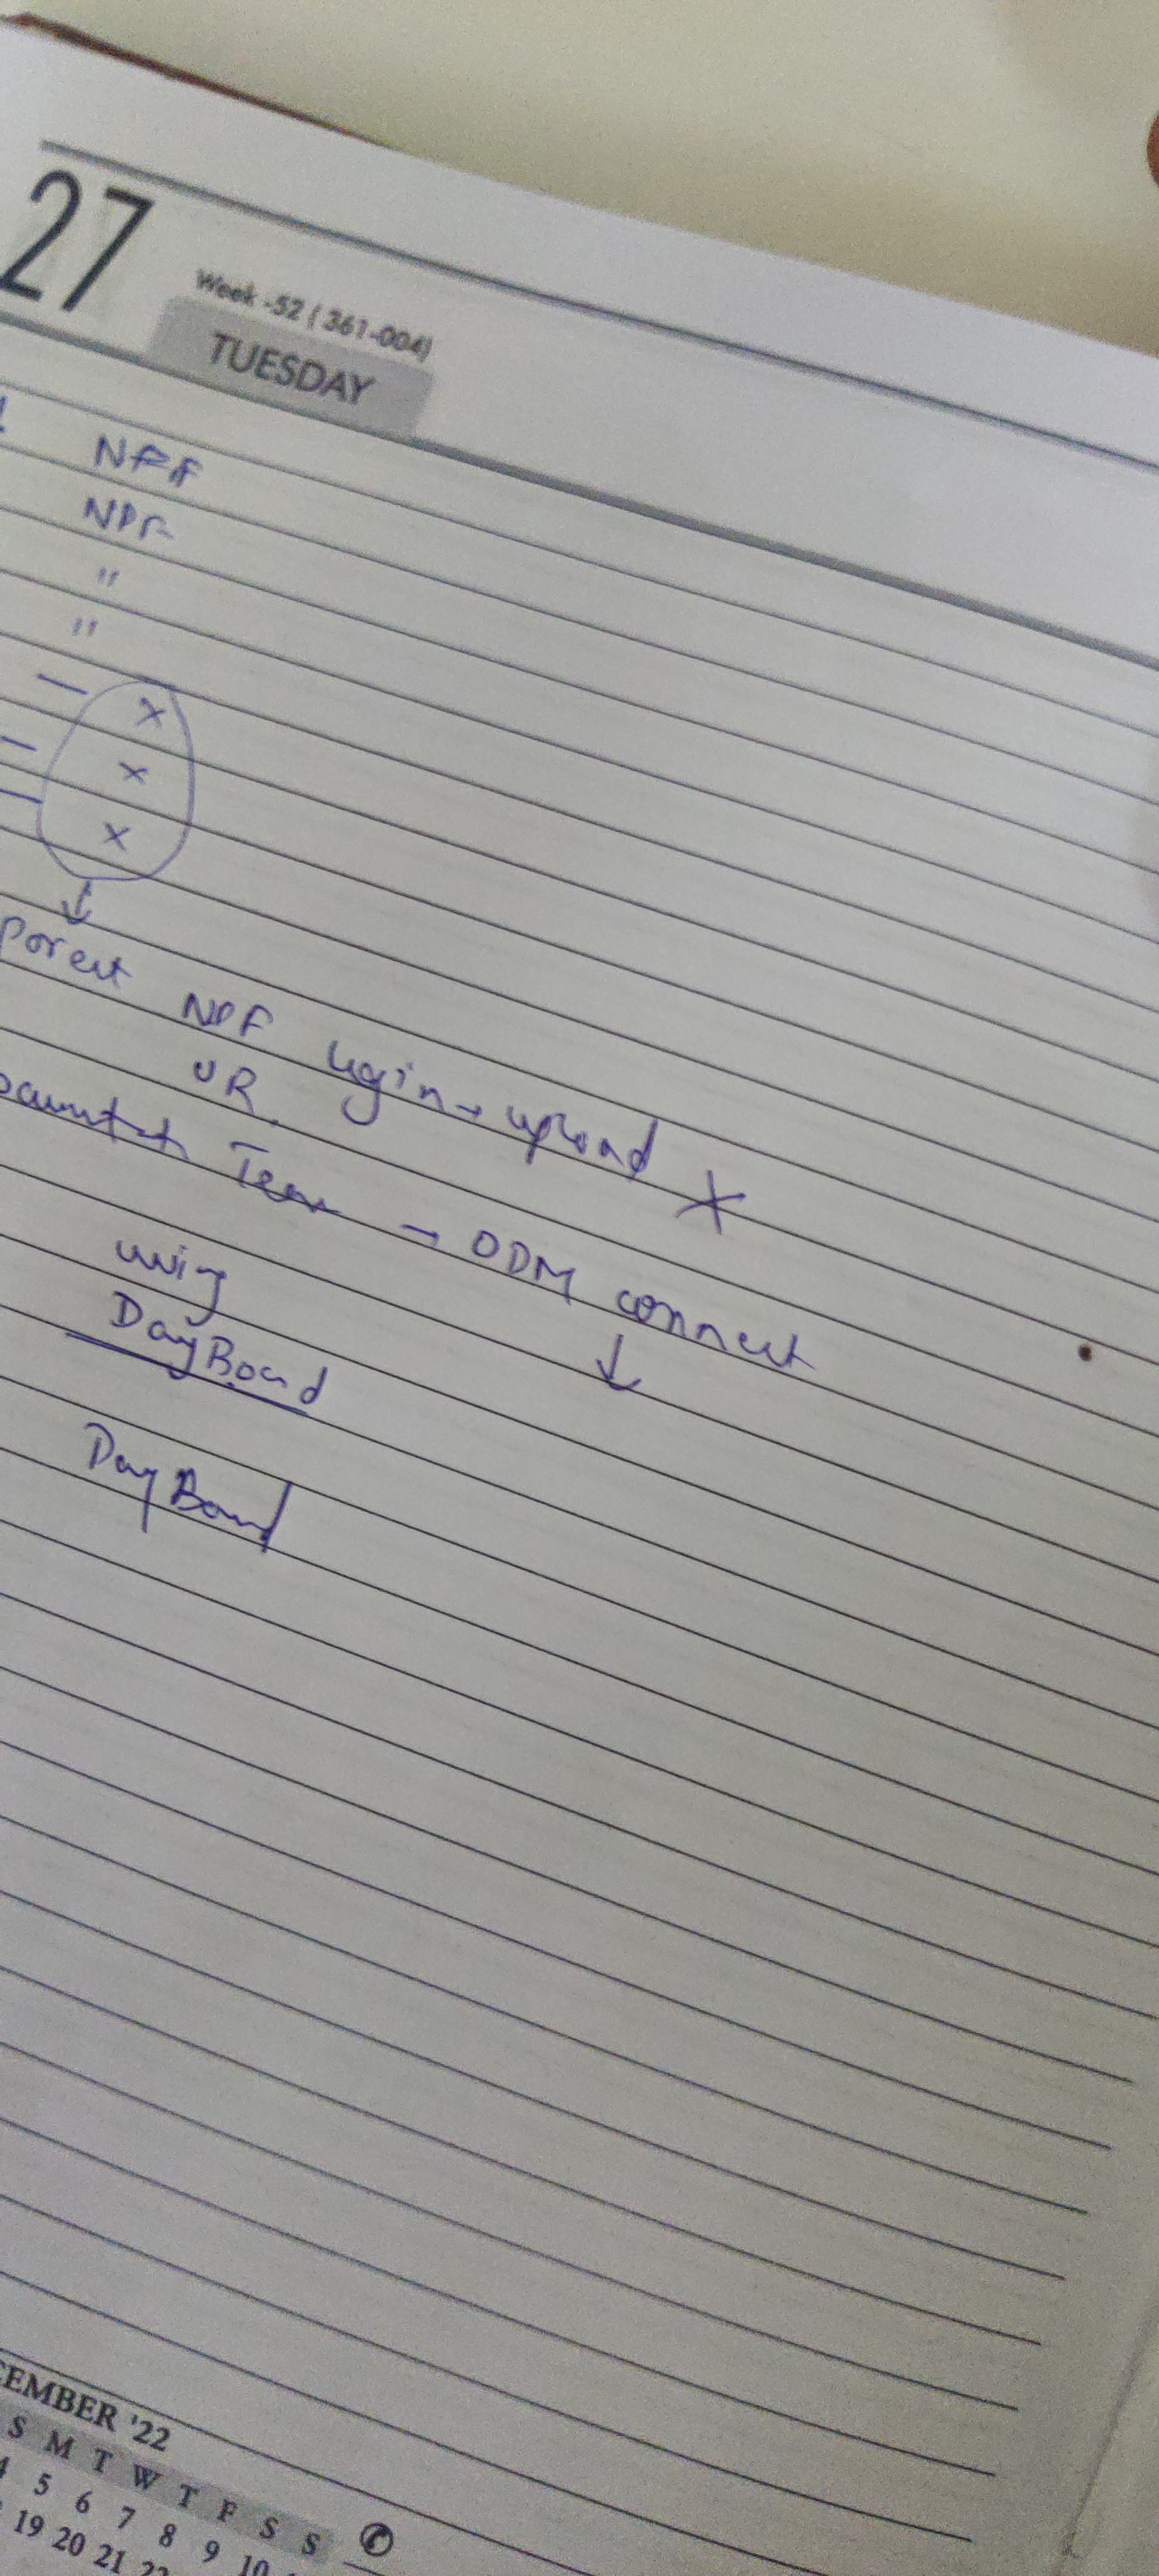 27
Week -52 (361-004)
TUESDAY
NPF
NPF
"
"
— x
— x
— x
↓
NPF login → upload X
OR
Team → ODM connect
↓
using
DayBoard
DayBoard
CEMBER '22
S M T W T F S S
4 5 6 7 8 9 10
19 20 21 22